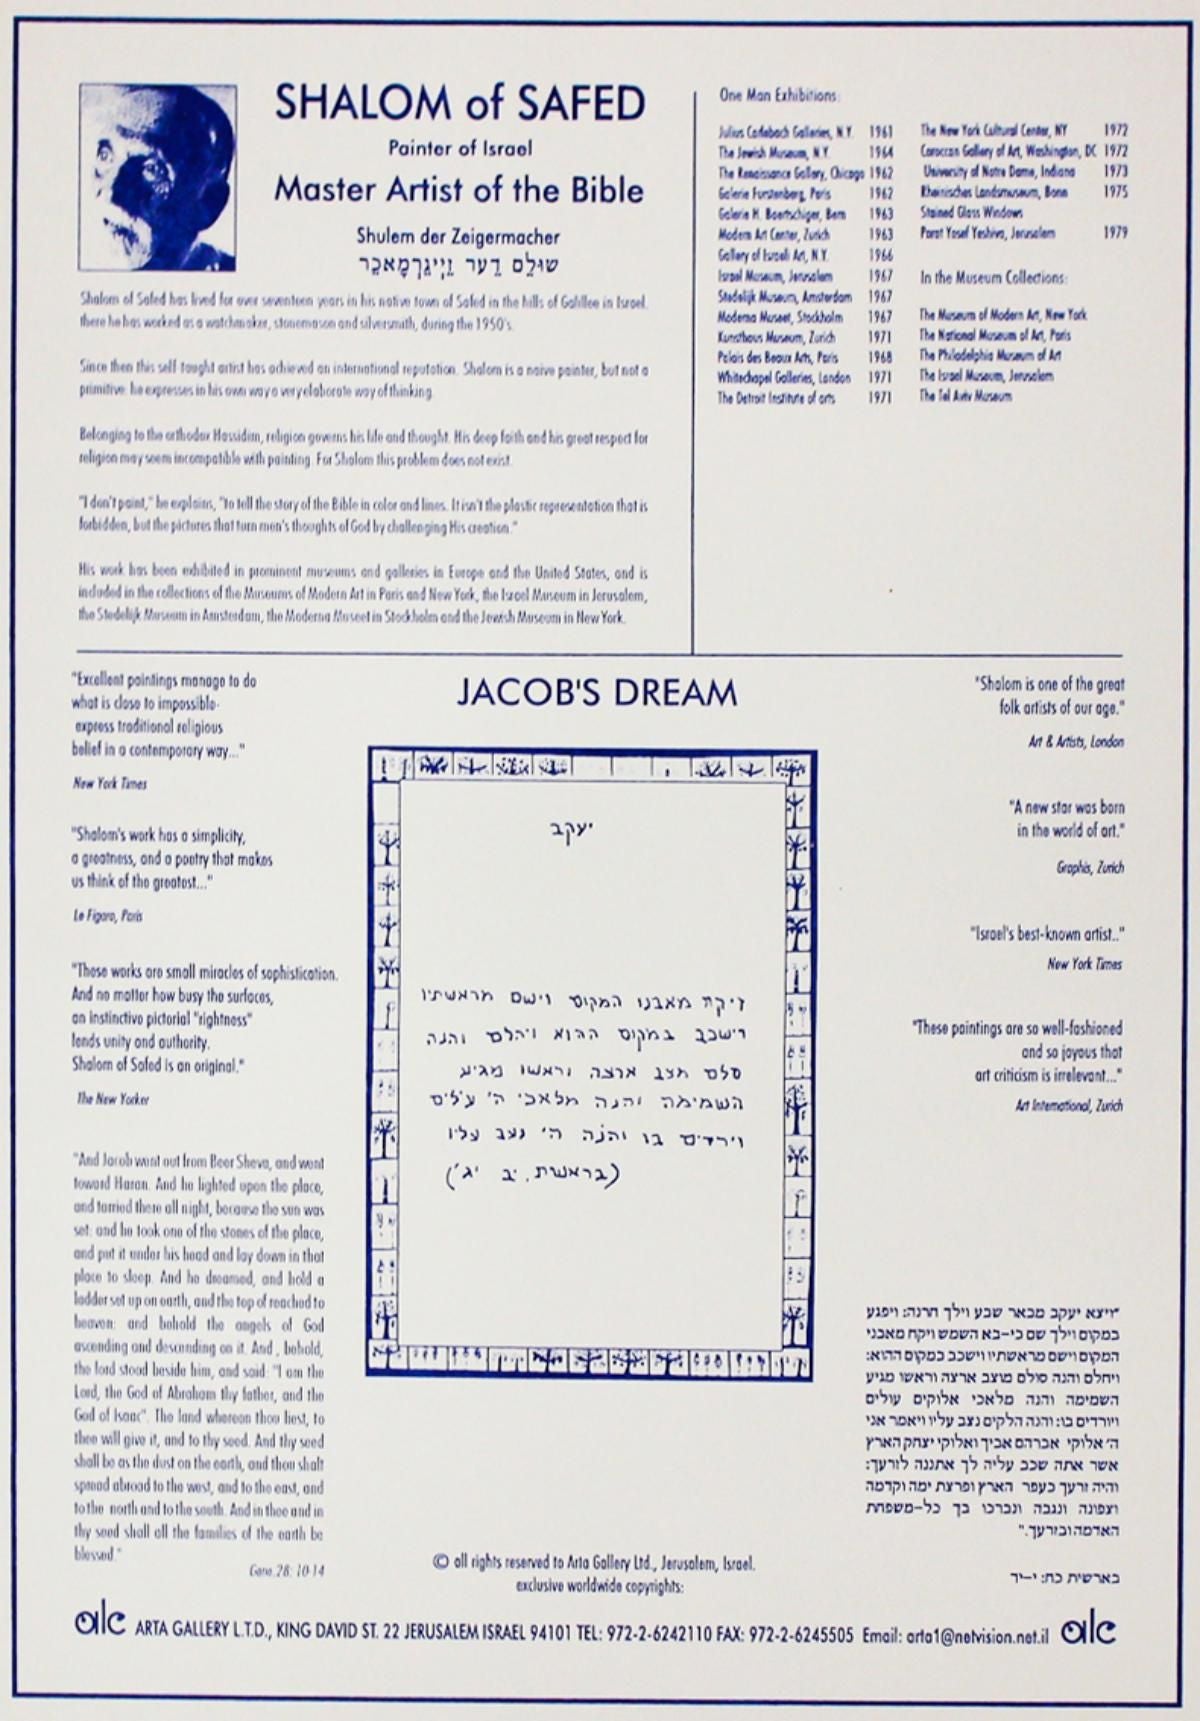 SHALOM of SAFED
Painter of Israel
Master Artist of the Bible
Shulem der Zeigermacher
שולם דער זייגרמאכער
Shalom of Safed has lived for over seventeen years in his native town of Safed in the hills of Galillee in Israel.
there he has worked as a watchmaker, stonemason and silversmith, during the 1950's.
Since then this self-taught artist has achieved an international reputation. Shalom is a naive painter, but not a
primitive: he expresses in his own way a very elaborate way of thinking.
Belonging to the orthodox Hassidim, religion governs his life and thought. His deep faith and his great respect for
religion may seem incompatible with painting. For Shalom this problem does not exist.
"I don't paint," he explains, "to tell the story of the Bible in color and lines. It isn't the plastic representation that is
forbidden, but the pictures that turn men's thoughts of God by challenging His creation."
His work has been exhibited in prominent museums and galleries in Europe and the United States, and is
included in the collections of the Museums of Modern Art in Paris and New York, the Israel Museum in Jerusalem,
the Stedelijk Museum in Amsterdam, the Moderna Museet in Stockholm and the Jewish Museum in New York.
One Man Exhibitions:
Julius Carlebach Galleries, N.Y. 1961
The Jewish Museum, N.Y. 1964
The Renaissance Gallery, Chicago 1962
Galerie Furstenberg, Paris 1962
Galerie H. Baertschiger, Bern 1963
Modern Art Center, Zurich 1963
Gallery of Israeli Art, N.Y. 1966
Israel Museum, Jerusalem 1967
Stedelijk Museum, Amsterdam 1967
Moderna Museet, Stockholm 1967
Kunsthaus Museum, Zurich 1971
Palais des Beaux Arts, Paris 1968
Whitechapel Galleries, London 1971
The Detroit Institute of arts 1971
The New York Cultural Center, NY 1972
Corroccan Gallery of Art, Washington, DC 1972
University of Notre Dame, Indiana 1973
Rheinisches Landsmuseum, Bonn 1975
Stained Glass Windows
Porat Yosef Yeshiva, Jerusalem 1979
In the Museum Collections:
The Museum of Modern Art, New York
The National Museum of Art, Paris
The Philadelphia Museum of Art
The Israel Museum, Jerusalem
The Tel Aviv Museum
"Excellent paintings manage to do
what is close to impossible-
express traditional religious
belief in a contemporary way..."
New York Times
"Shalom's work has a simplicity,
a greatness, and a poetry that makes
us think of the greatest..."
Le Figaro, Paris
"These works are small miracles of sophistication.
And no matter how busy the surfaces,
an instinctive pictorial "rightness"
lends unity and authority.
Shalom of Safed is an original."
The New Yorker
"And Jacob went out from Beer Sheva, and went
toward Haran. And he lighted upon the place,
and tarried there all night, because the sun was
set: and he took one of the stones of the place,
and put it under his head and lay down in that
place to sleep. And he dreamed, and hold a
ladder set up on earth, and the top of reached to
heaven: and behold the angels of God
ascending and descending on it. And , behold,
the lord stood beside him, and said: "I am the
Lord, the God of Abraham thy father, and the
God of Isaac". The land whereon thou liest, to
thee will give it, and to thy seed. And thy seed
shall be as the dust on the earth, and thou shalt
spread abroad to the west, and to the east, and
to the north and to the south. And in thee and in
thy seed shall all the families of the earth be
blessed."
Gene.28: 10-14
JACOB'S DREAM
יעקב
ויקח מאבנו המקום וישם מראשתיו
וישכב במקום ההוא ויהלם והנה
סלם מצב ארצה וראשו מגיע
השמימה והנה מלאכי ה' עלים
וירדים בו והנה ה' נצב עליו
(בראשת, יב יג')
"Shalom is one of the great
folk artists of our age."
Art & Artists, London
"A new star was born
in the world of art."
Graphis, Zurich
"Israel's best-known artist.."
New York Times
"These paintings are so well-fashioned
and so joyous that
art criticism is irrelevant..."
Art International, Zurich
"ויצא יעקב מבאר שבע וילך חרנה: ויפגע
במקום וילך שם כי-בא השמש ויקח מאבני
המקום וישם מראשתיו וישכב במקום ההוא:
ויחלם והנה סולם מוצב ארצה וראשו מגיע
השמימה והנה מלאכי אלוקים עולים
ויורדים בו: והנה הלקים נצב עליו ויאמר אני
ה' אלוקי אברהם אביך ואלוקי יצחק הארץ
אשר אתה שכב עליה לך אתננה לזרעך:
והיה זרעך כעפר הארץ ופרצת ימה וקדמה
וצפונה ונגבה ונברכו בך כל-משפחת
האדמה ובזרעך."
בארשית כח: י-יד
© all rights reserved to Arta Gallery Ltd., Jerusalem, Israel.
exclusive worldwide copyrights:
alc ARTA GALLERY L.T.D., KING DAVID ST. 22 JERUSALEM ISRAEL 94101 TEL: 972-2-6242110 FAX: 972-2-6245505 Email: arta1@netvision.net.il alc